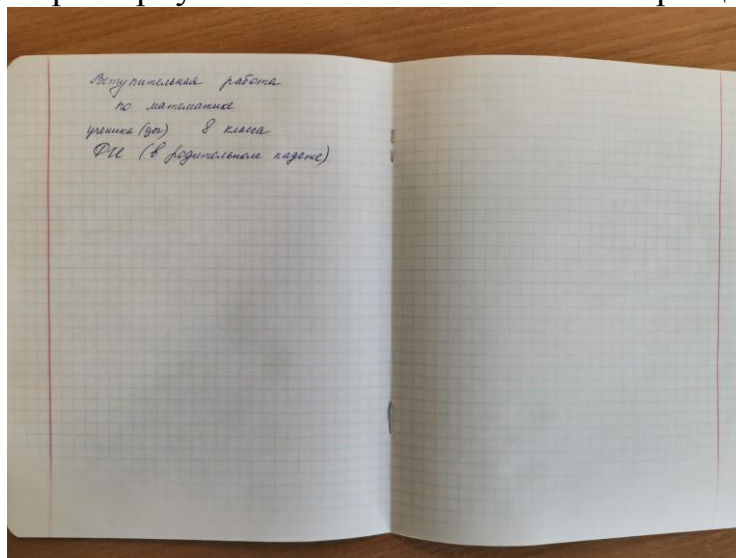 Вступительная работа
по математике
ученика (цы) 8 класса
ФИ (в родительном падеже)